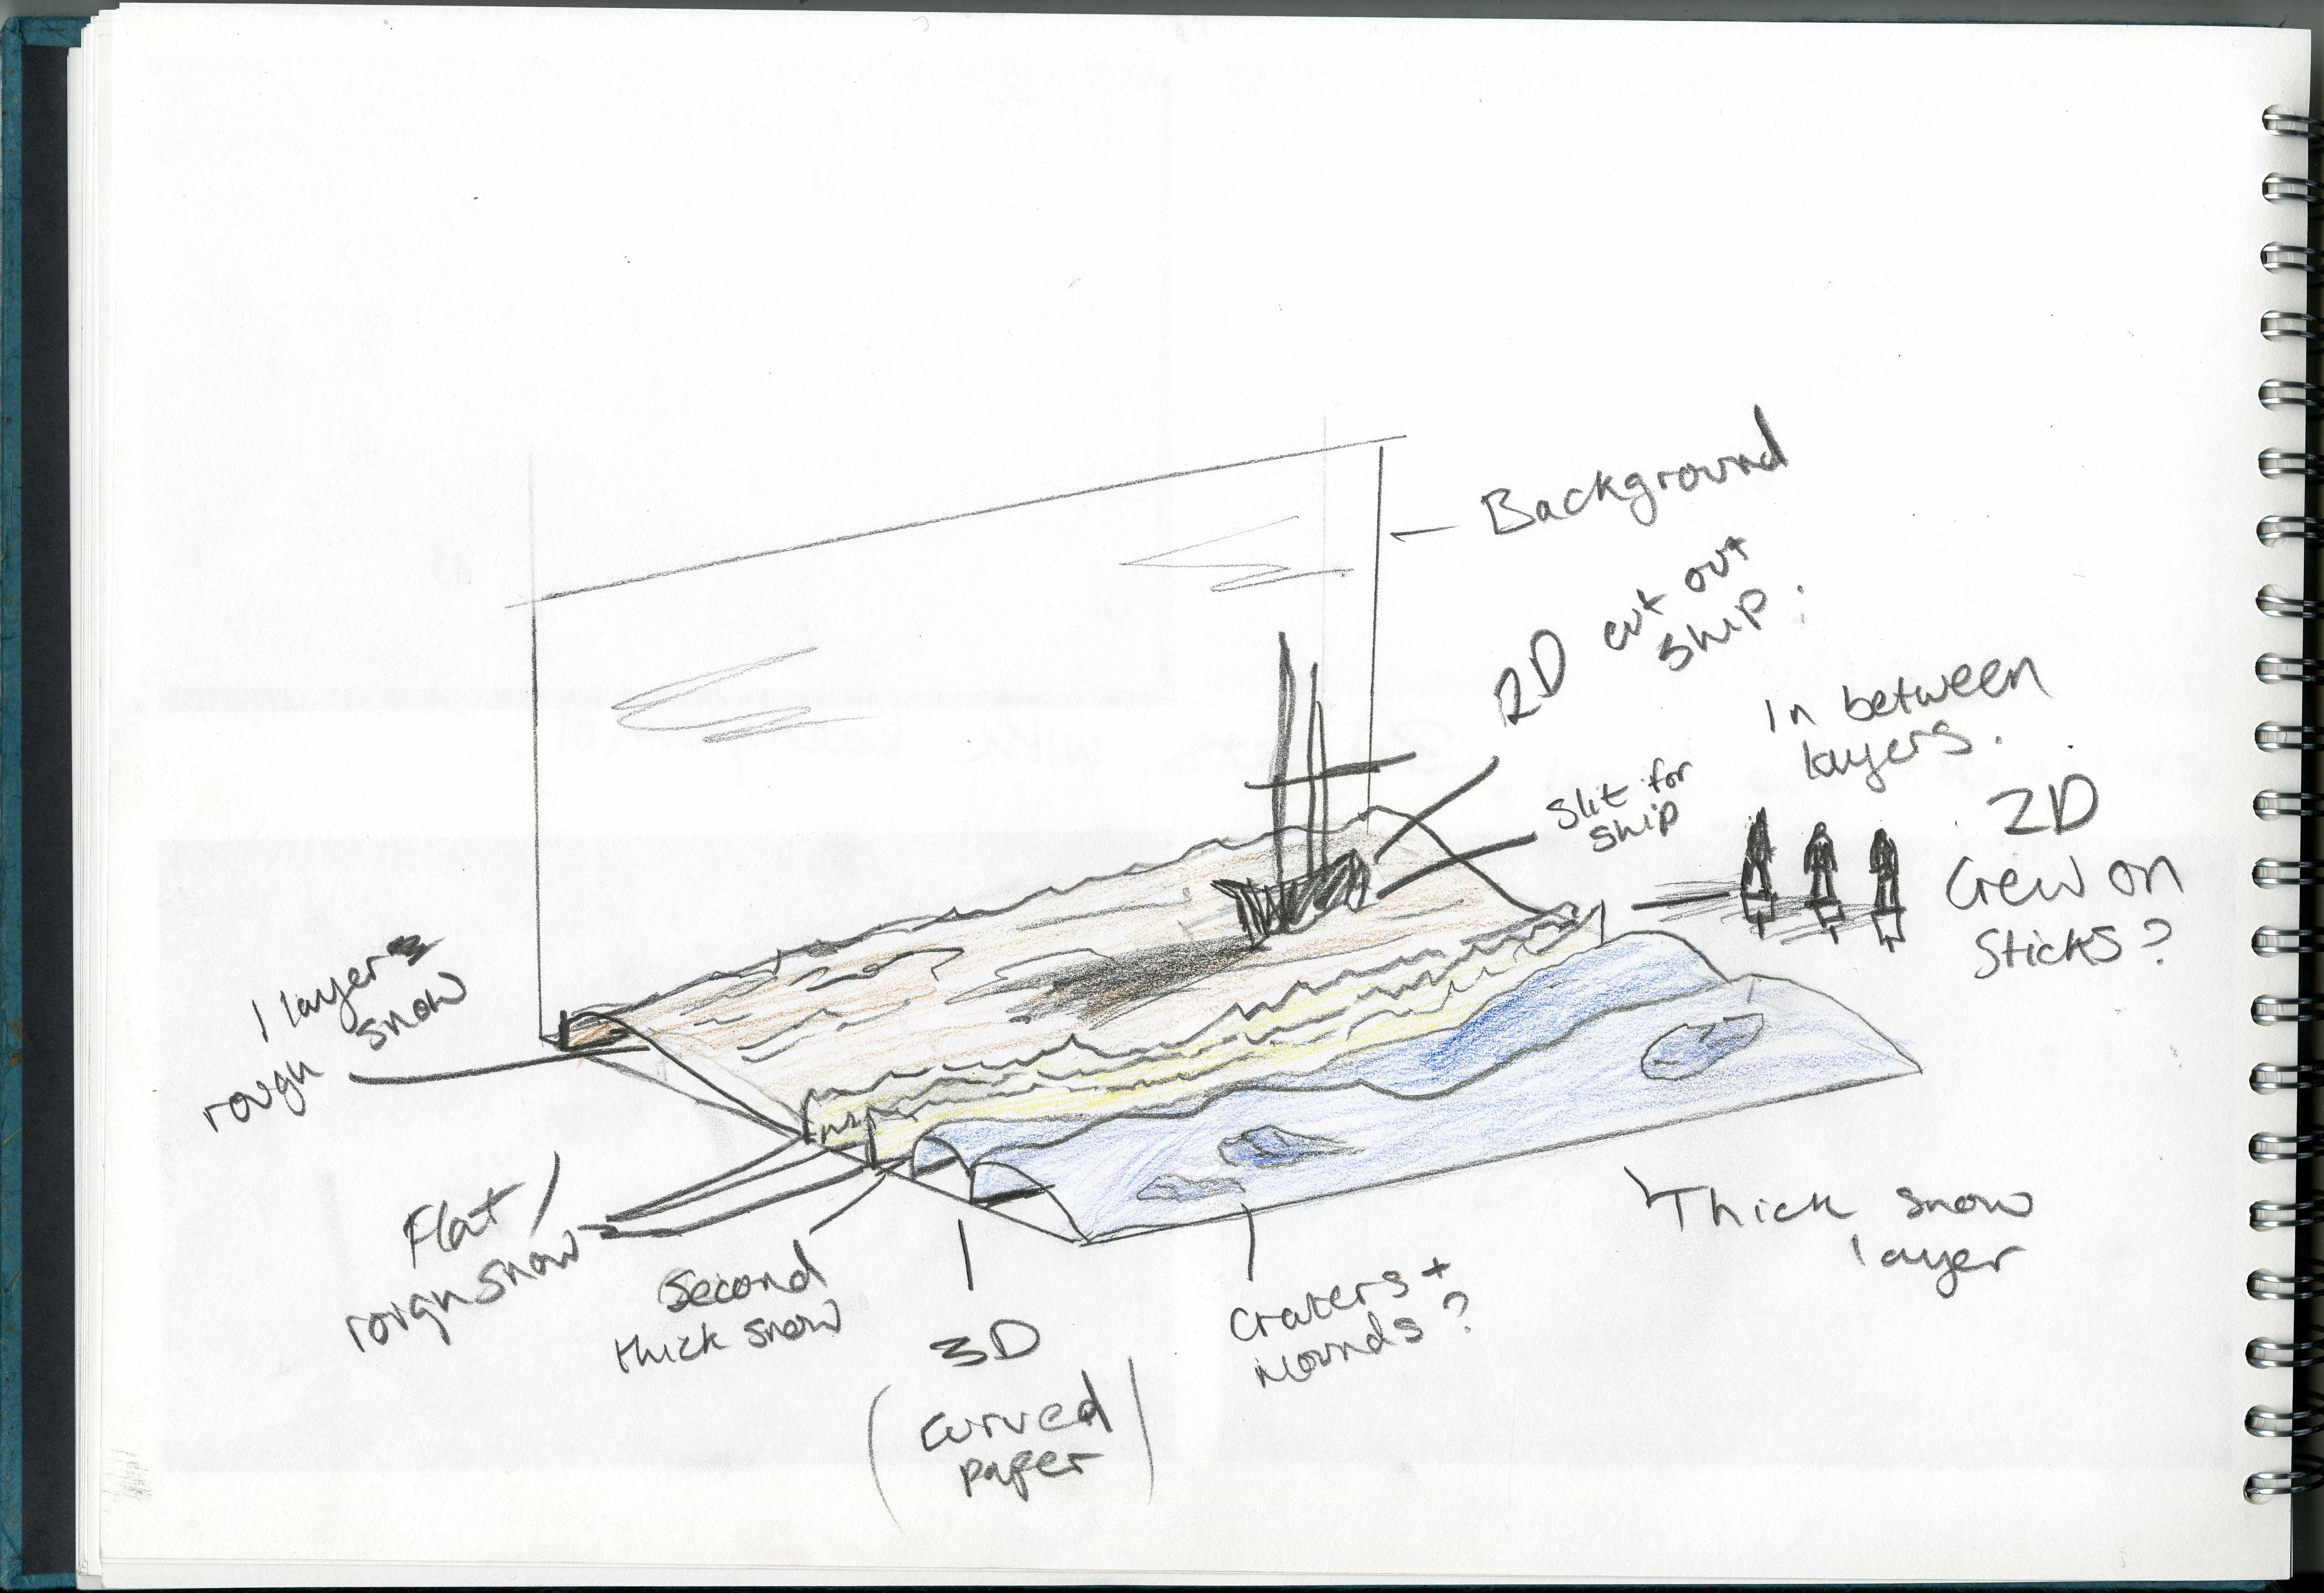 Background
2D cut out
ship.
In between
layers.
Slit for
ship
2D
Crew on
sticks?
1 layer
rough snow
Flat /
rough snow
Second
thick snow
3D
(curved
paper)
Craters +
Mounds?
Thick snow
layer